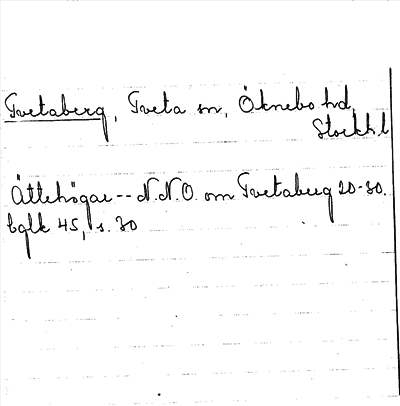 Tvetaberg, Tveta sn, Öknebo hd,
Stockh.l
Ättehögar -- N.N.O. om Tvetaberg 20-30.
bglk 45, s. 30